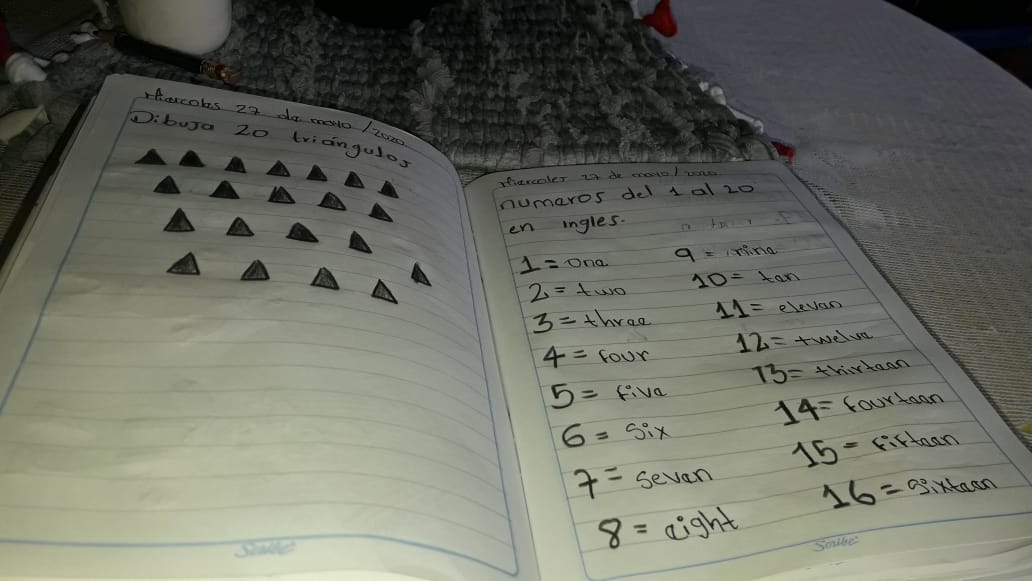 Miercoles 27 de mayo /2020.
Dibuja 20 triángulos
Scribe
Miercoles 27 de mayo/2020
numeros del 1 al 20
en ingles.
1 = one
2 = two
3 = three
4 = four
5 = five
6 = six
7 = seven
8 = eight
9 = nine
10 = ten
11 = eleven
12 = twelve
13 = thirteen
14 = fourteen
15 = fifteen
16 = sixteen
Scribe